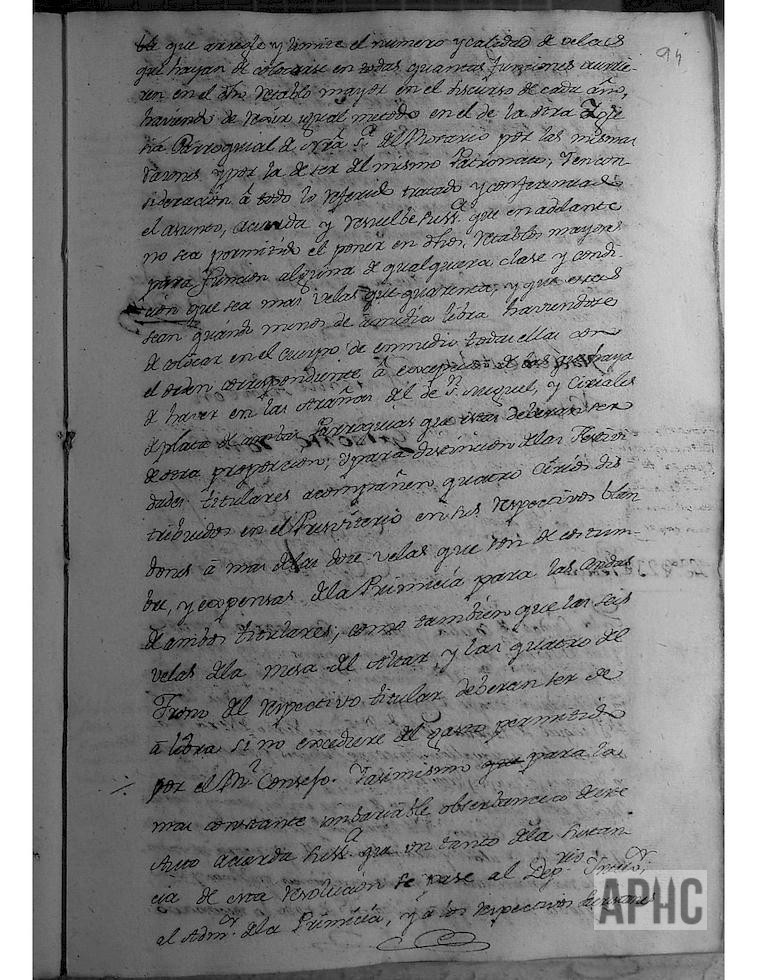 94
ble que arregle y limite el numero y calidad de velas
que hayan de colocarse en todas quantas funciones
en en el dho retablo mayor en el discurso de cada año,
haviendo de igual metodo en el de la otra Igle
sia Parroquial de Nra Sra. del Rosario por las mismas
razones y por la de ser del mismo Patronato, Y en con
sideracion à todo lo referido tratado y conferenciado
el asunto, acuerda y resuelbe Su Sª. que en adelante
no sea permitido el poner en dhos. retablos mayores
para funcion alguna de qualquera clase y condi-
cion que sea mas velas que quarenta, y que estas
sean quando menos de à media libra haviendose
de colocar en el cuerpo de enmedio todas ellas con
el orden correspondiente à excepcion de las que haya
de haver en las Arañas del de Sn. Miguel, y Ciriales
de plata de ambas Parroquias que estas deberan ser
de otra proporcion; y para distincion de las Festivi
dades titulares acompañen quatro Cirios dis
tribuidos en el Presviterio en sus respectivos blan
dones à mas de las doce velas que son de costum-
bre, y expensas de la Primicia para las andas
de ambos titulares; como tambien que las seis
velas de la mesa del Altar y las quatro del
Trono del respectivo titular deberan ser de
à libra si no excediere del gasto permitido
por el Rl. Consejo. Y asimismo para la
mas constante imbariable observancia de este
Auto acuerda Su Sª. que un tanto de la sustan
cia de esta resolucion se pase al
el Admor. de la Primicia, y à los respectivos
APHC